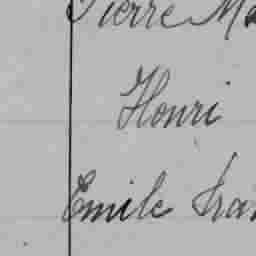 Pierre Ma
Henri
Emile Fra